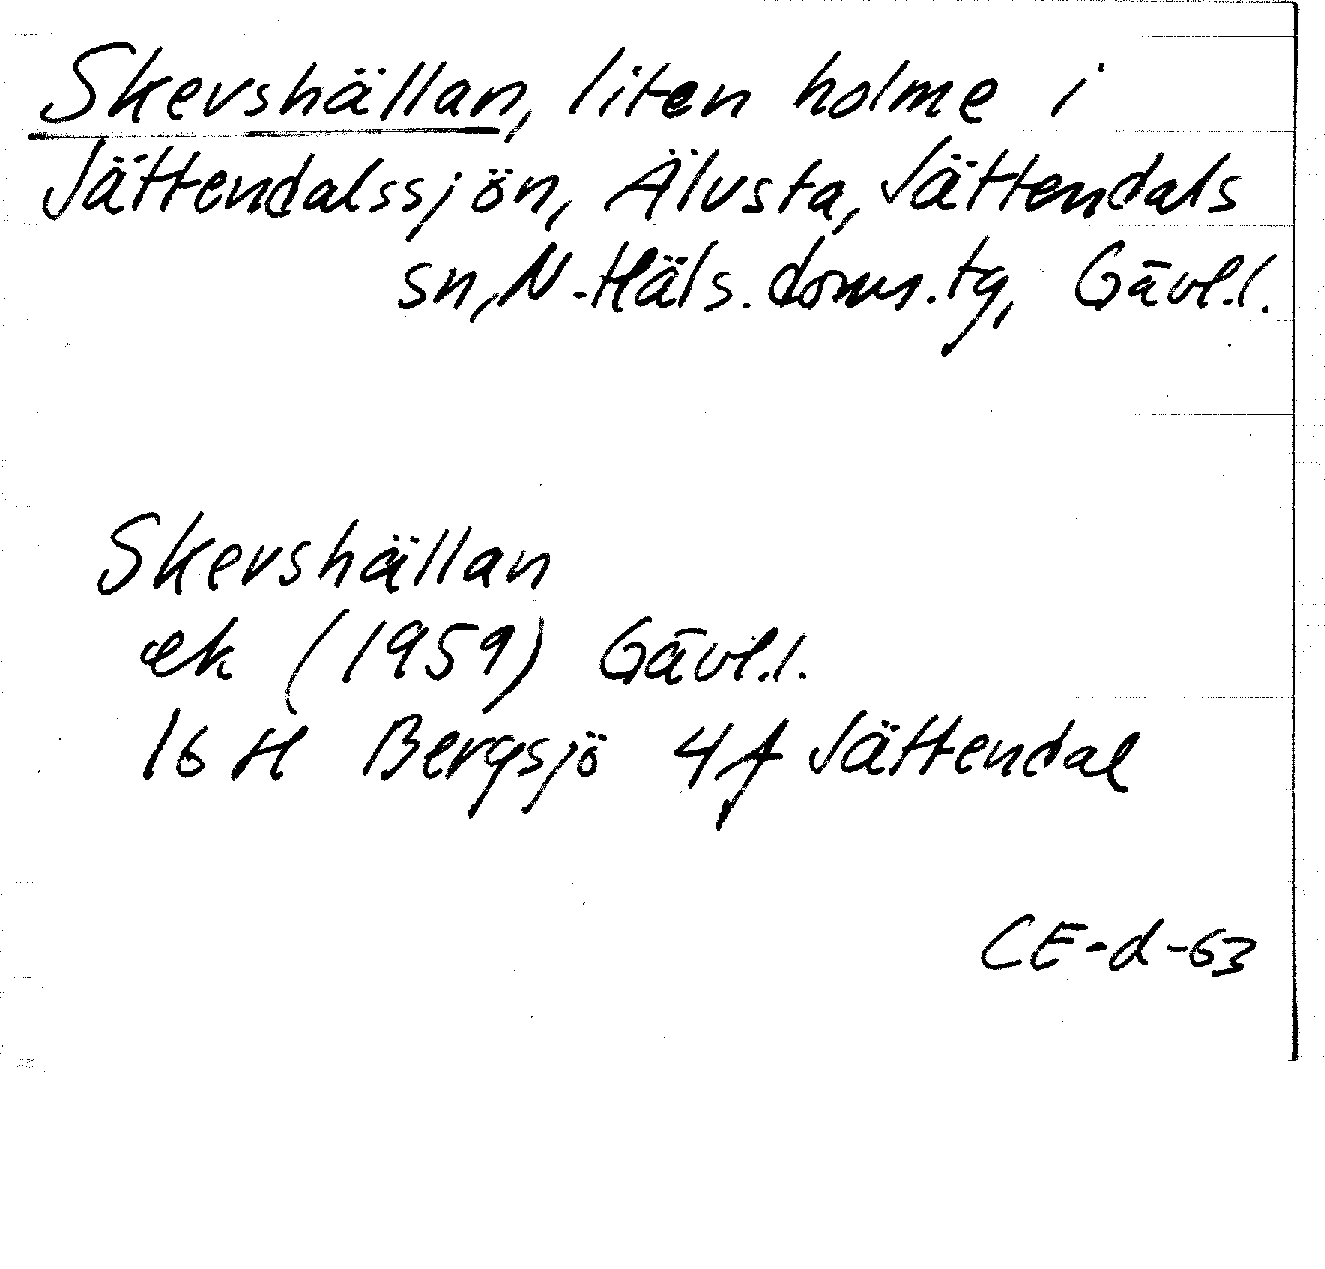 Skevshällan, liten holme i
Jättendalssjön, Älvsta, Jättendals
sn, N.Häls.doms.tg, Gävl.l.
Skevshällan
ek (1959) Gävl.l.
16 H Bergsjö 4f Jättendal
CE-d-63